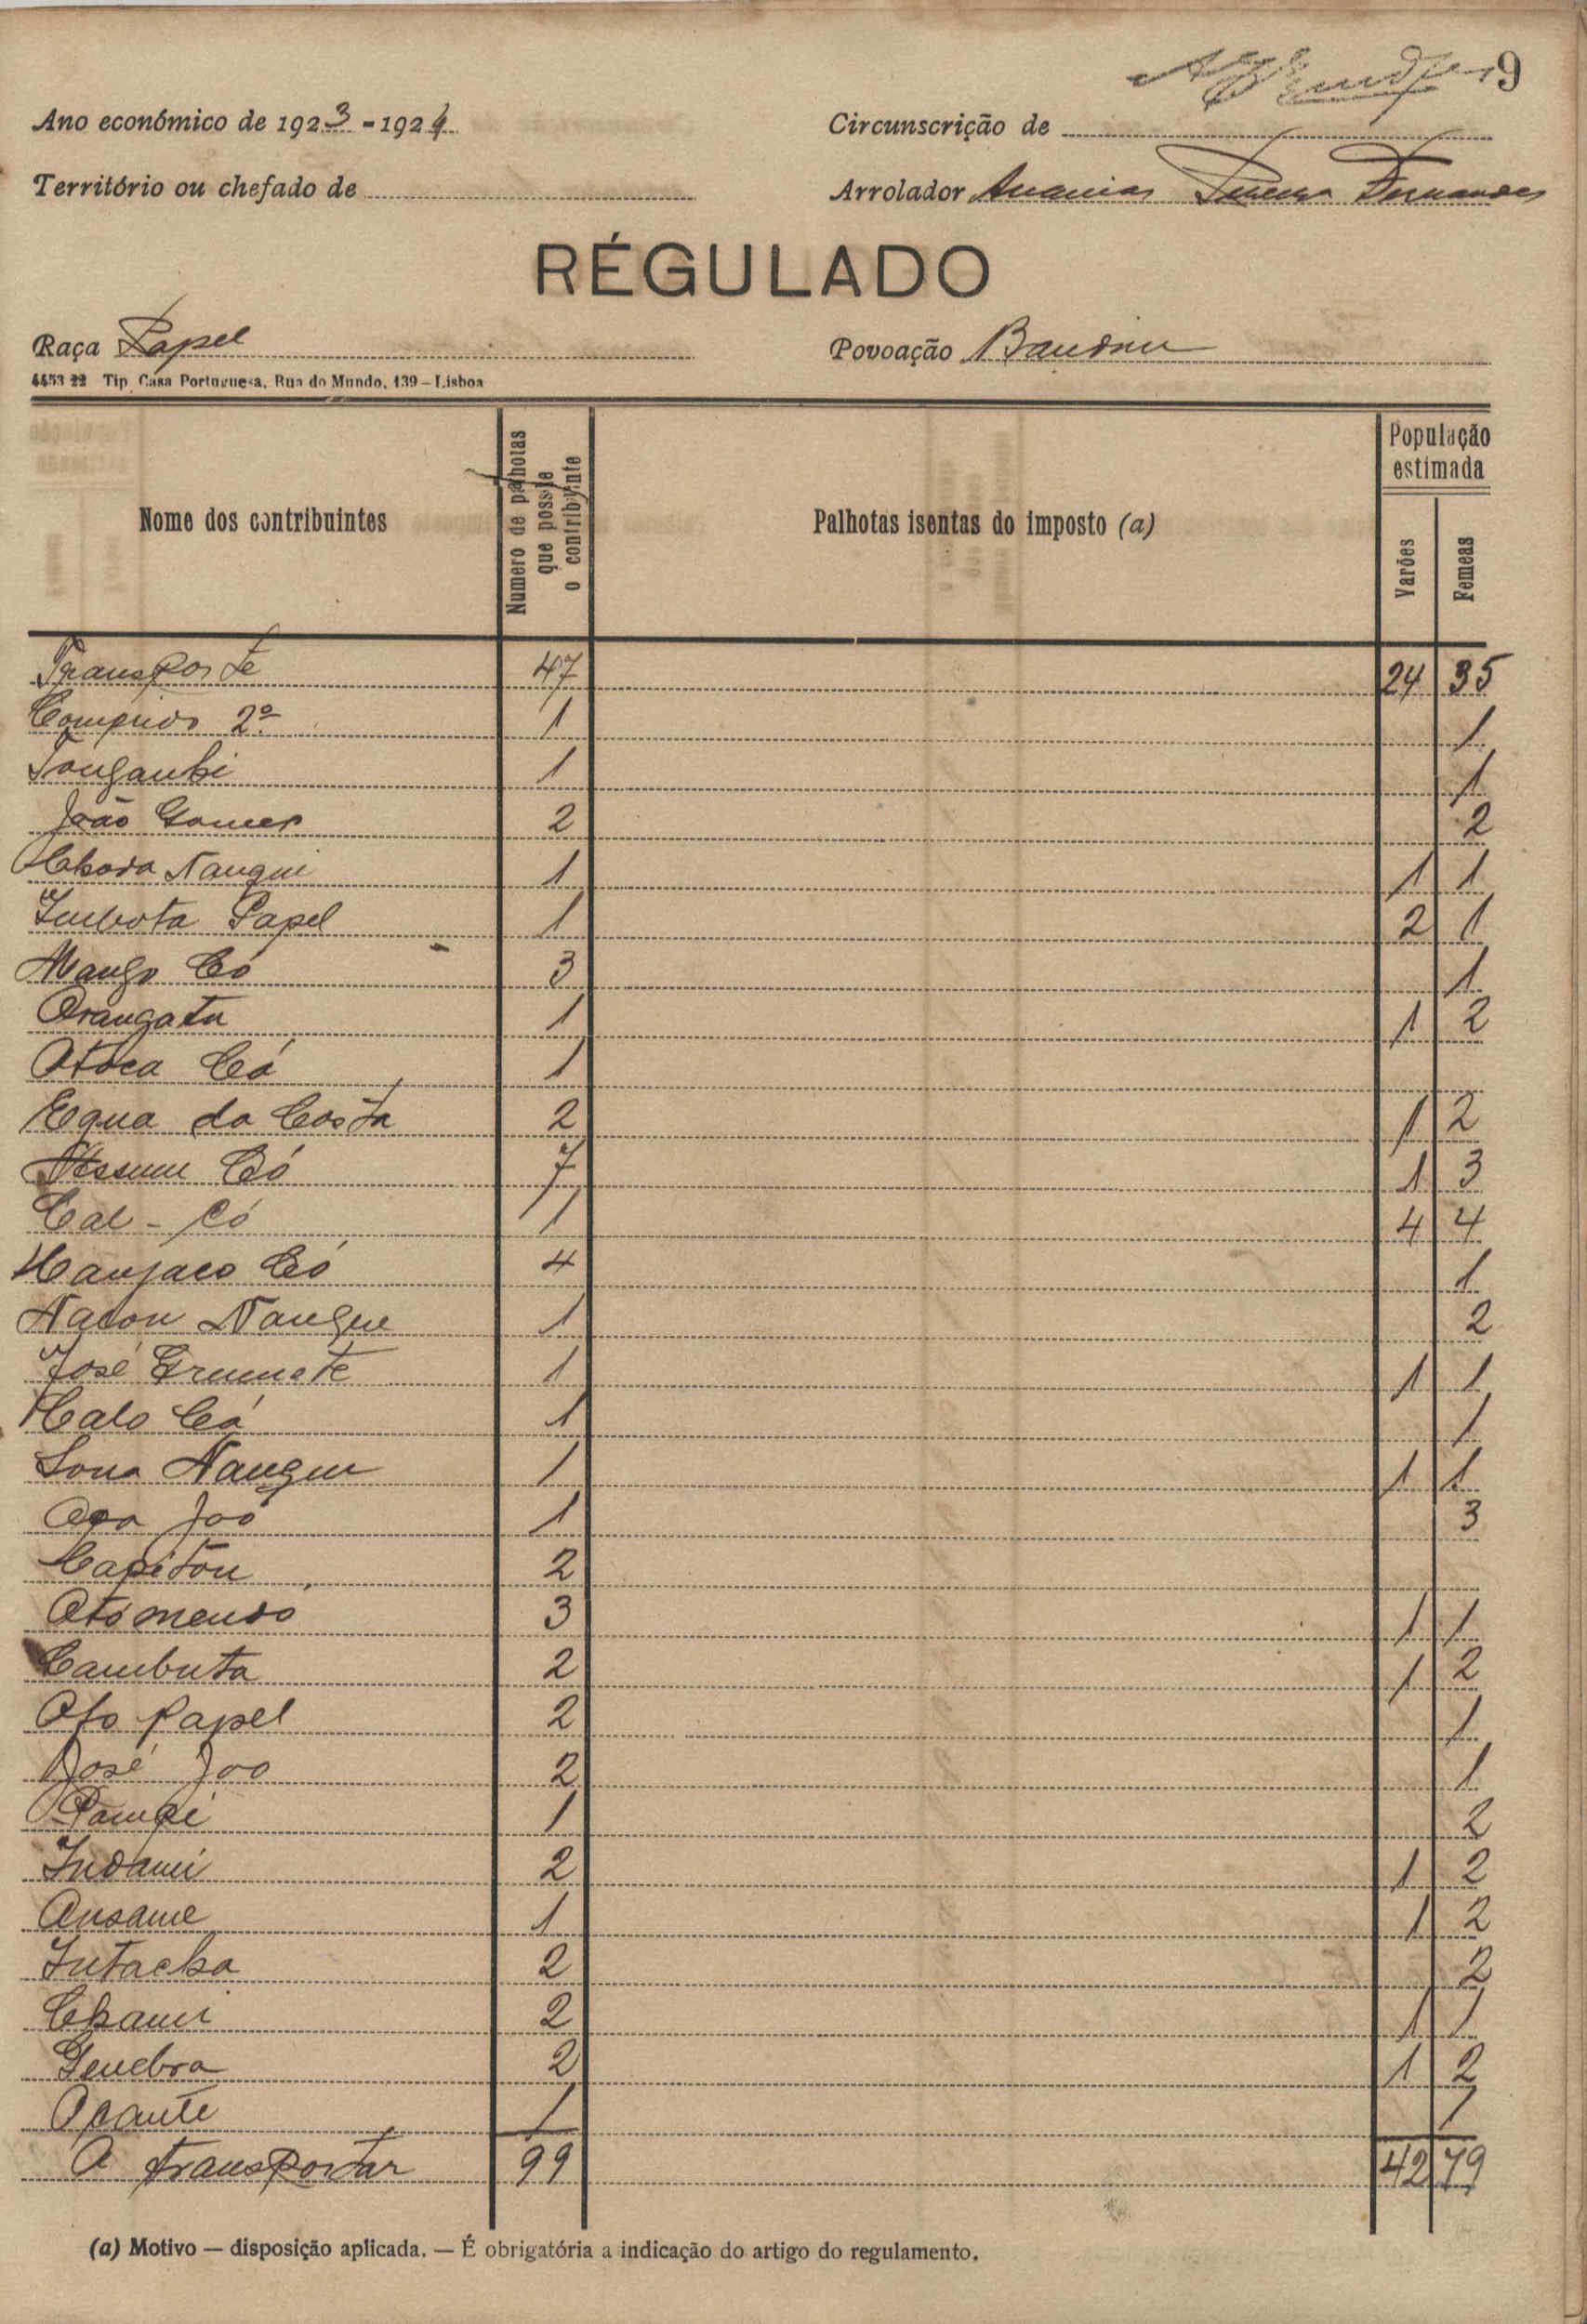 9
Ano económico de 1923-1924
Circunscrição de
Território ou chefado de
Arrolador Ananias Fernandes
RÉGULADO
Raça Papel
Povoação Bandim
4453 22 Tip. Casa Portuguesa, Rua do Mundo, 139 – Lisboa
Nome dos contribuintes
Numero de palhotas que possue o contribuinte
Palhotas isentas do imposto (a)
População estimada
Varões
Femeas
Transporte 47 24 35
Comprido 2º 1 1
1 1
João Gomes 2 2
Nangui 1 1 1
Imbota Papel 1 2 1
Mango Có 3 1
Orangatu 1 1 2
Otóca Cá 1
Equa da Costa 2 1 2
Có 7 1 3
Cal - Có 1 4 4
Manjaco Có 4 1
Nacon Nangue 1 2
José Grumete 1 1 1
Malo Cá 1 1
Sona Nangue 1 1 1
Joó 1 3
Capiton 2
3 1 1
Cambuta 2 1 2
Ofo Papel 2 1
José Joo 2 1
Pampi 1 2
Indami 2 1 2
Ansame 1 1 2
Intacha 2 2
Chami 2 1 1
Genebra 2 1 2
Ocante 1 1
A transportar 99 42 79
(a) Motivo — disposição aplicada. — É obrigatória a indicação do artigo do regulamento.